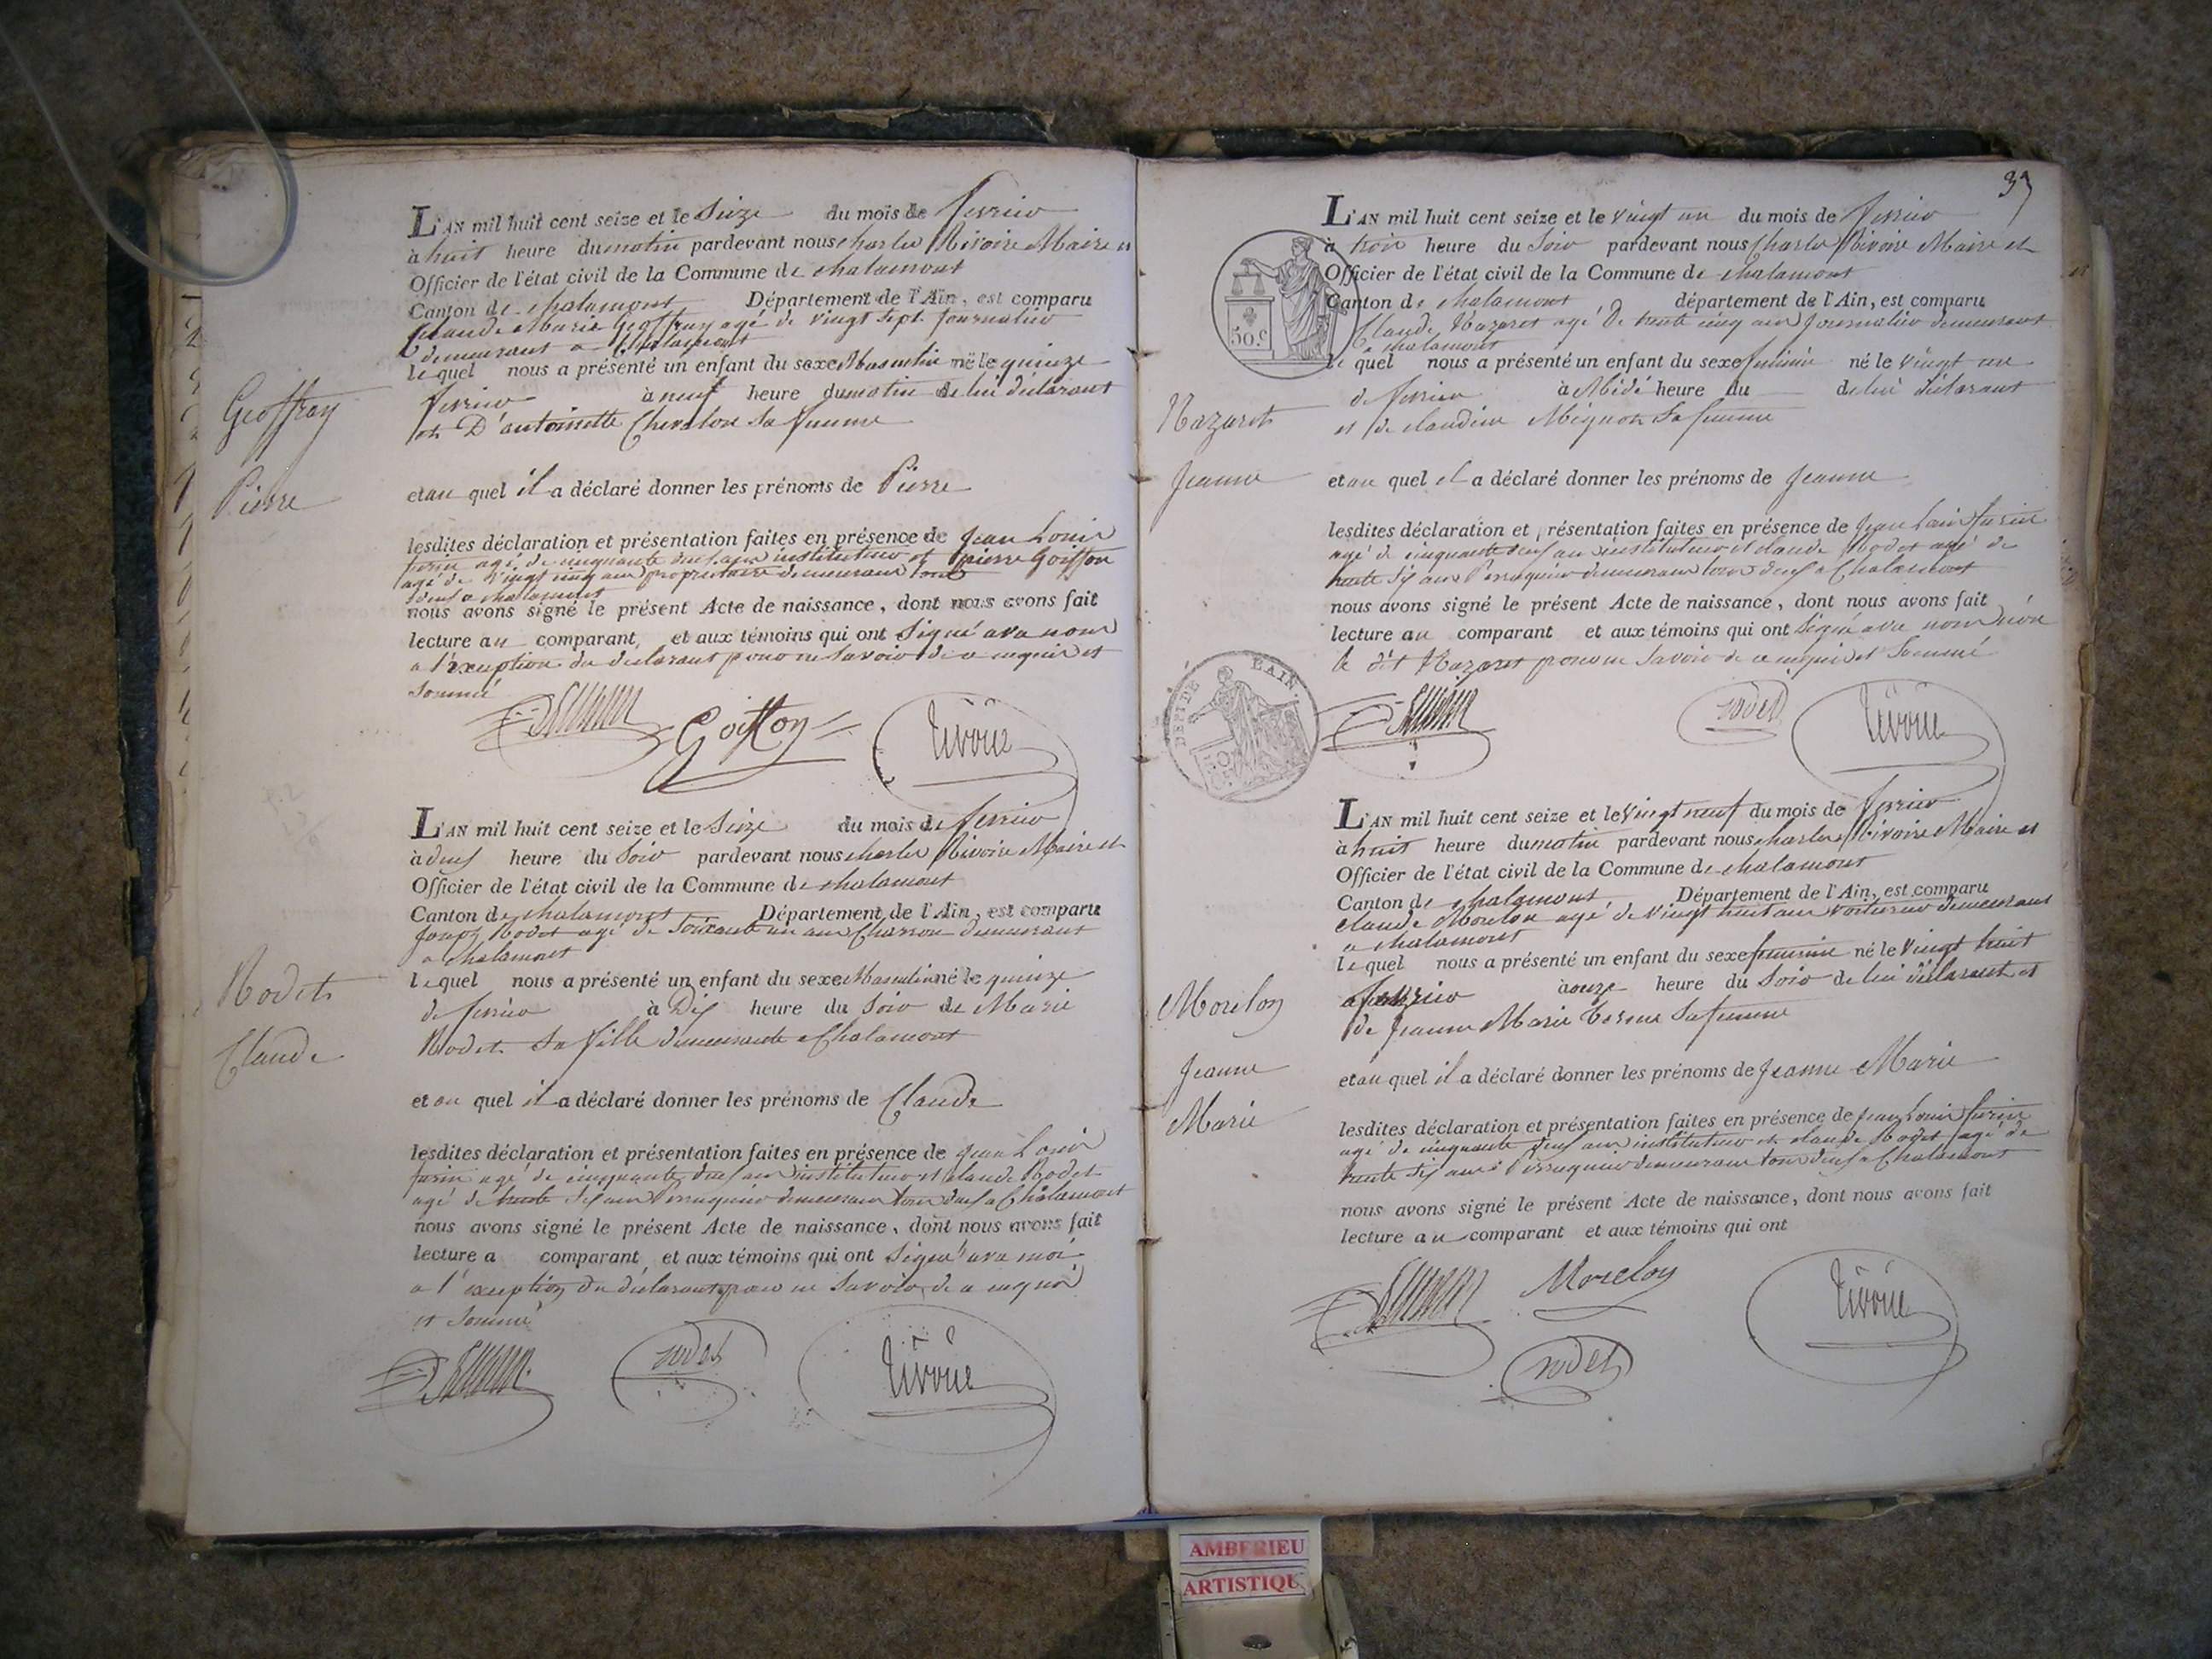 L'AN mil huit cent seize et le Seize du mois de fevrier
à huit heure du matin pardevant nous charles Rivoire Maire et
Officier de l'état civil de la Commune de chalamont
Canton de chalamont Département de l'Ain, est comparu
Claude Marie Geoffray agé de vingt sept journalier
demeurant a Chalamont
lequel nous a présenté un enfant du sexe Masculin né le quinze
Geoffray
fevrier à neuf heure du matin de lui déclarant
et D'antoinette Chevalon sa femme
Pierre
et au quel il a déclaré donner les prénoms de Pierre
lesdites déclaration et présentation faites en présence de Jean Louis
agé de cinquante deux ans instituteur et pierre Goiffon
agé de vingt cinq ans propriétaire demeurans tous
deux a chalamont
nous avons signé le présent Acte de naissance, dont nous avons fait
lecture au comparant, et aux témoins qui ont Signé avec nous
a l'exception du declarant pour ne savoir de ce enquis et
sommé
Goiffon
rivoire
L'AN mil huit cent seize et le Seize du mois de fevrier
à deux heure du Soir pardevant nous charles Rivoire Maire et
Officier de l'état civil de la Commune de chalamont
Canton de chalamont Département de l'Ain, est comparu
Joseph Rodet agé de Soixante un ans Charron demeurant
a chalamont
lequel nous a présenté un enfant du sexe Masculin né le quinze
Rodet
de fevrier à Dix heure du Soir de Marie
Claude
Rodet sa fille demeurante a Chalamont
et au quel il a déclaré donner les prénoms de Claude
lesdites déclaration et présentation faites en présence de Jean Louis
agé de cinquante deux ans instituteur et claude Rodet
agé de trente six ans Perruquier demeurans tous deux a Chalamont
nous avons signé le présent Acte de naissance, dont nous avons fait
lecture a comparant, et aux témoins qui ont Signé avec moi
a l'exception du declarant pour ne savoir de ce enquis
et sommé
rodet
rivoire
37
L'AN mil huit cent seize et le vingt un du mois de fevrier
à trois heure du Soir pardevant nous Charles Rivoire Maire et
Officier de l'état civil de la Commune de chalamont
Canton de chalamont département de l'Ain, est comparu
Claude Nazaret agé De trente cinq ans Journalier demeurant
a chalamont
50.c
le quel nous a présenté un enfant du sexe feminin né le vingt un
de fevrier à Midi heure du de lui déclarant
Nazaret
et de claudine Mignon sa femme
Jeanne
et au quel il a déclaré donner les prénoms de Jeanne
lesdites déclaration et présentation faites en présence de Jean Louis
agé de cinquante deux ans instituteur et claude Rodet agé de
trente six ans Perruquier demeurans tous deux a Chalamont
nous avons signé le présent Acte de naissance, dont nous avons fait
lecture au comparant et aux témoins qui ont signé avec nous non
le dit Nazaret pour ne savoir de ce enquis et Sommé
DEPT DE L'AIN.
rodet
rivoire
L'AN mil huit cent seize et le Vingt neuf du mois de fevrier
à huit heure du matin pardevant nous charles Rivoire Maire et
Officier de l'état civil de la Commune de chalamont
Canton de chalamont Département de l'Ain, est comparu
claude Morelon agé de vingt huit ans voiturier demeurant
a chalamont
lequel nous a présenté un enfant du sexe feminin né le Vingt huit
Morelon
fevrier à onze heure du Soir de lui déclarant et
de Jeanne Marie sa femme
Jeanne
Marie
et au quel il a déclaré donner les prénoms de Jeanne Marie
lesdites déclaration et présentation faites en présence de Jean Louis
agé de cinquante deux ans instituteur et claude Rodet agé de
trente six ans Perruquier demeurans tous deux a Chalamont
nous avons signé le présent Acte de naissance, dont nous avons fait
lecture au comparant et aux témoins qui ont
Morelon
rodet
rivoire
AMBERIEU
ARTISTIQUE